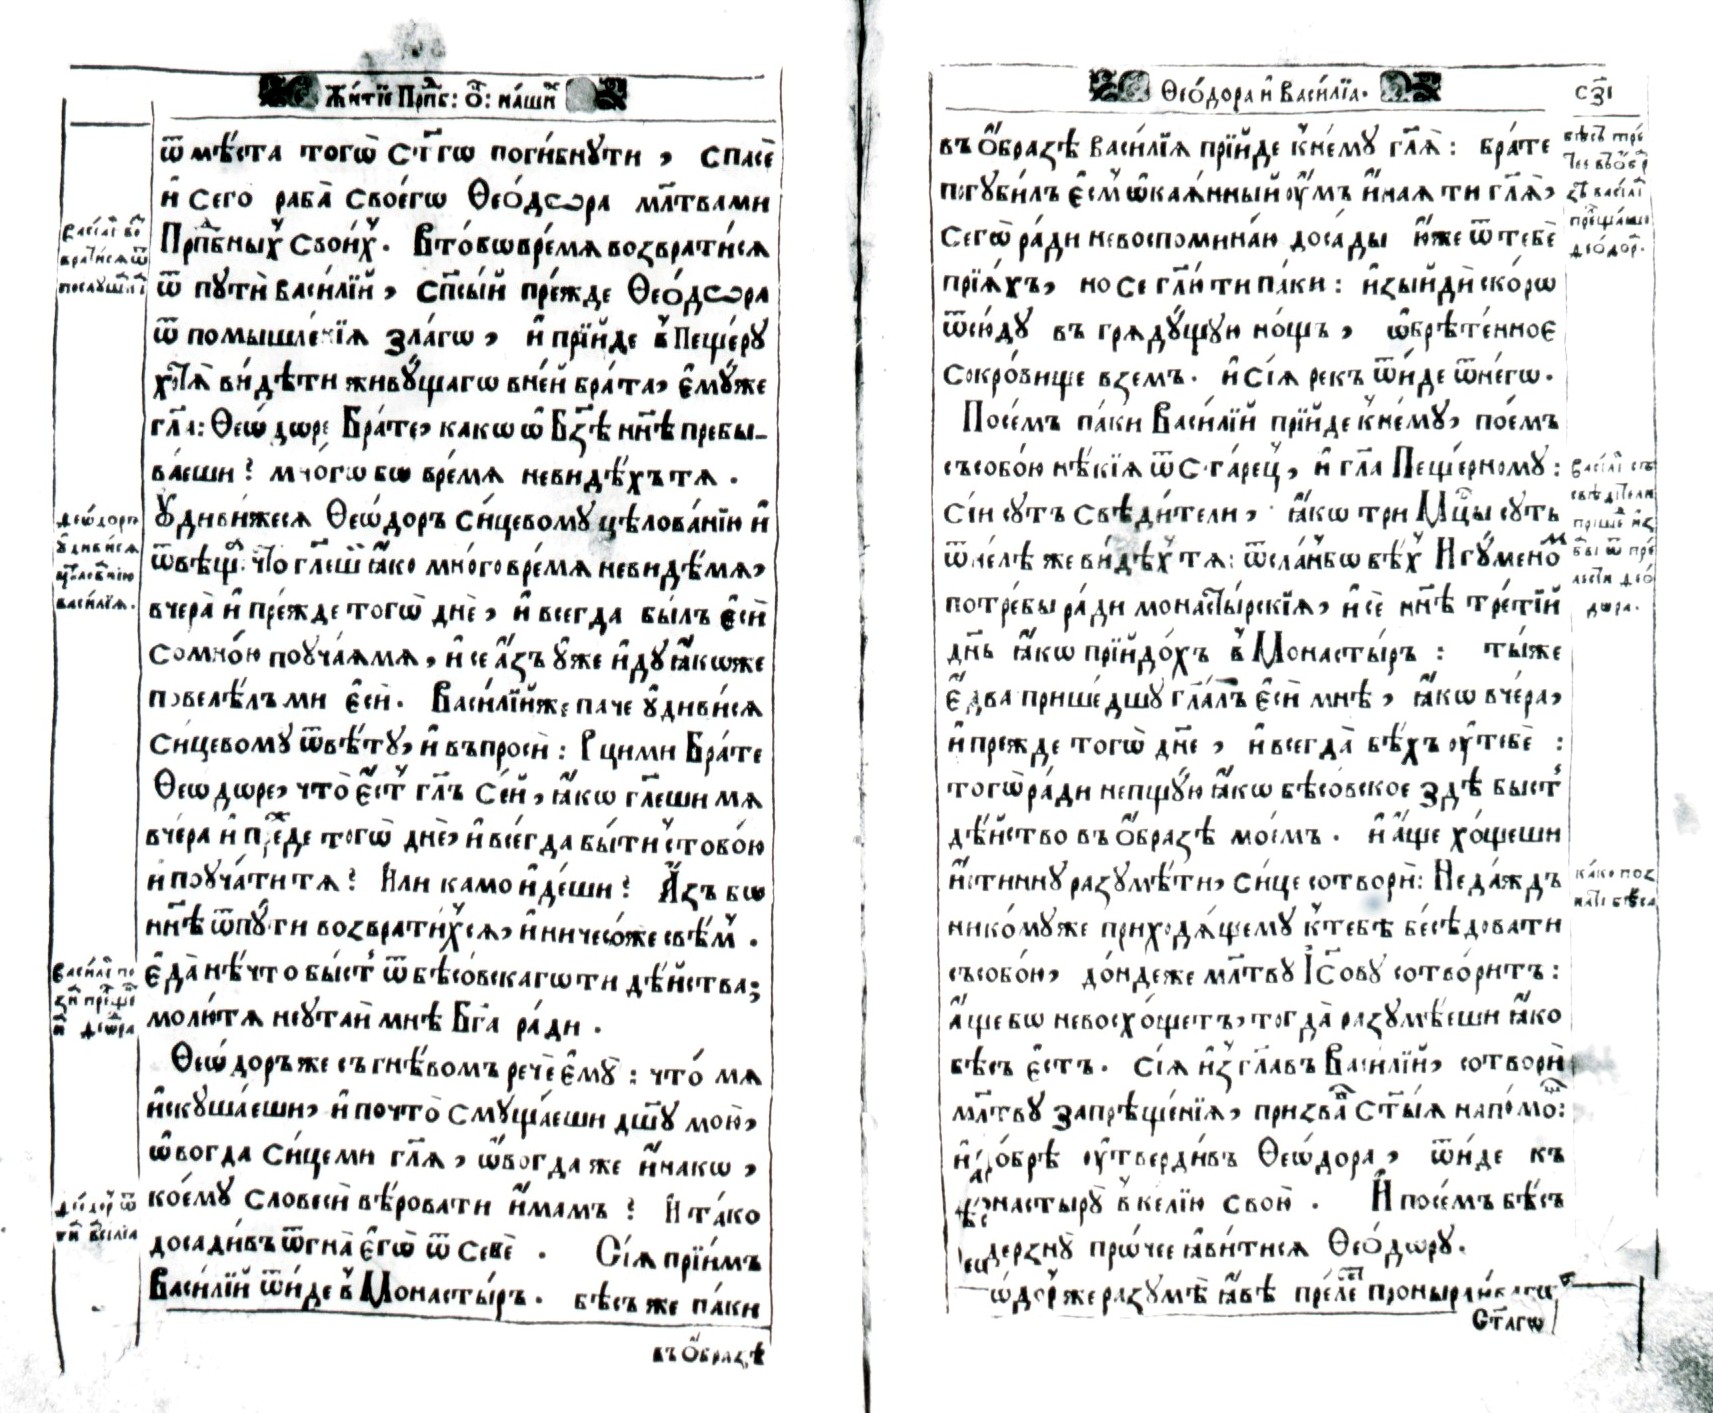 Житїе Прпб: о: нашиⷯ
ѿ мѣста тогѡ стгѡ погибнути, спасе
и сего раба своегѡ Ѳеодѡра млтвами
Прпбныхъ своихъ. Втоⷤбѡ время возвратися
ѿ пути Василїй, спсый прежде Ѳеодѡра
ѿ помышленїя злагѡ, и прїйде в Пещеру
хотя видѣти живущаго вней брата, емуже
гла: Ѳеѡдѡре Брате, какѡ ѡ Бзѣ ннѣ пребы-
ваеши? многѡ бѡ время невидѣхъ тя.
Удивижеся Ѳеѡдоръ сицевому цѣлованїи и
ѿвѣща: Что глеши ꙗко много время невидѣ мя,
вчера и прежде тогѡ дне, и всегда былъ еси
сомною поучая мя, и се азъ уже иду ꙗкѡже
повелѣлъ ми еси. Василїйже паче удивися
сицевому ѿвѣту, и въпроси: Рцими Брате
Ѳеѡдѡре, что есть глъ сей, ꙗкѡ глеши мя
вчера и прежде тогѡ дне, и всегда быти стобою
и поучати тя? Или камо идеши? Азъ бѡ
ннѣ ѿпути возвратихся, и ничесоже свѣмъ.
Еда нѣчто бысть ѿ бѣсовскагѡ ти дѣйства;
молютя неутай мнѣ Бга ради.
Ѳеѡдоръ же съ гнѣвомъ рече ему: что мя
искушаеши, и почто смущаеши дшу мою,
ѡвогда сицеми гля, ѡвогда же инакѡ,
коему словеси вѣровати имамъ? И тако
досадивъ ѿгна егѡ ѿ себе. Сїя прїимъ
Василїй ѿиде в Монастырь. бѣсъ же паки
въ образѣ
Ѳеодора и Василїа. сзі
въ образѣ Василїя прїйде к нему гля: брате
погубилъ есмь ѡкаянный умъ иная ти гля,
сегѡ ради невоспоминаю досады юже ѿ тебе
прїяхъ, но се гли ти паки: изыйди скорѡ
ѿсюду въ грядущую нощь, ѡбрѣтенное
сокровище вземъ. и сїя рекъ ѿиде ѿнегѡ.
Посемъ паки Василїй прїйде к нему, поемъ
съ собою нѣкїя ѿ старецъ, и гла Пещерному:
сїи суть свѣдители, ꙗкѡ три Мцы суть
ѿнелѣ же видѣхъ тя: ѿсланъбѡ бѣхъ Игуменомъ
потребы ради монастырскїя, и се ннѣ третїй
днь ꙗкѡ прїидохъ в Монастырь: тыже
едва пришедшу глалъ еси мнѣ, ꙗкѡ вчера,
и прежде тогѡ дне, и всегда бѣхъ у тебе:
тогѡ ради непщую ꙗкѡ бѣсовское здѣ бысть
дѣйство въ образѣ моемъ. и аще хощеши
истинну разумѣти, сице сотвори: Недаждь
никомуже приходящему к тебѣ бесѣдовати
съ собою, дондеже млтву Ісову сотворитъ:
аще бѡ невосхощетъ, тогда разумѣеши ꙗко
бѣсъ есть. Сїя изглавъ Василїй, сотвори
млтву запрѣщенїя, призвавъ стыя на помощь:
и добрѣ утвердивъ Ѳеѡдора, ѿиде къ
монастырю в келїю свою. И посемъ бѣсъ
дерзну прѡчее ꙗвитися Ѳеодѡру.
ѡдоръже разумѣ ꙗвѣ прелесть пронырливагѡ
Стагѡ
Василїй возвратися ѿ послушанїя
Ѳеѡдоръ удивися цѣлованїю василїя.
Ѳеодоръ ѿгна василїа
бѣсъ третее въ образѣ василїй прещаше ѳеодоръ.
како познати бѣса